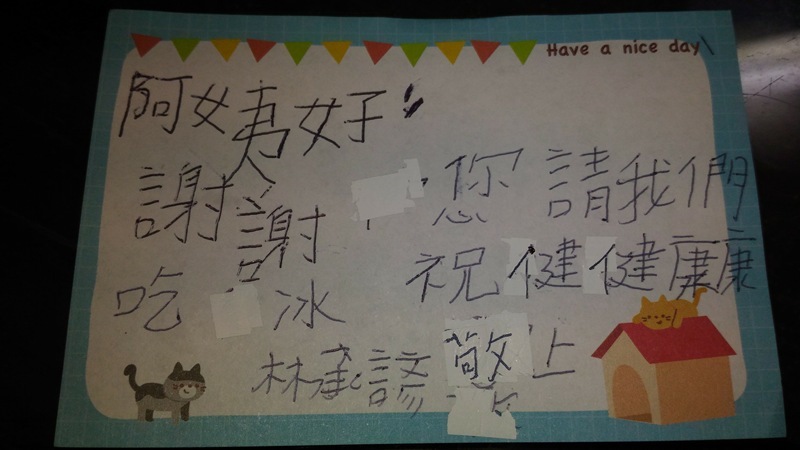 Have a nice day
阿姨好
謝謝您請我們
吃冰祝健健康康
林承諺敬上